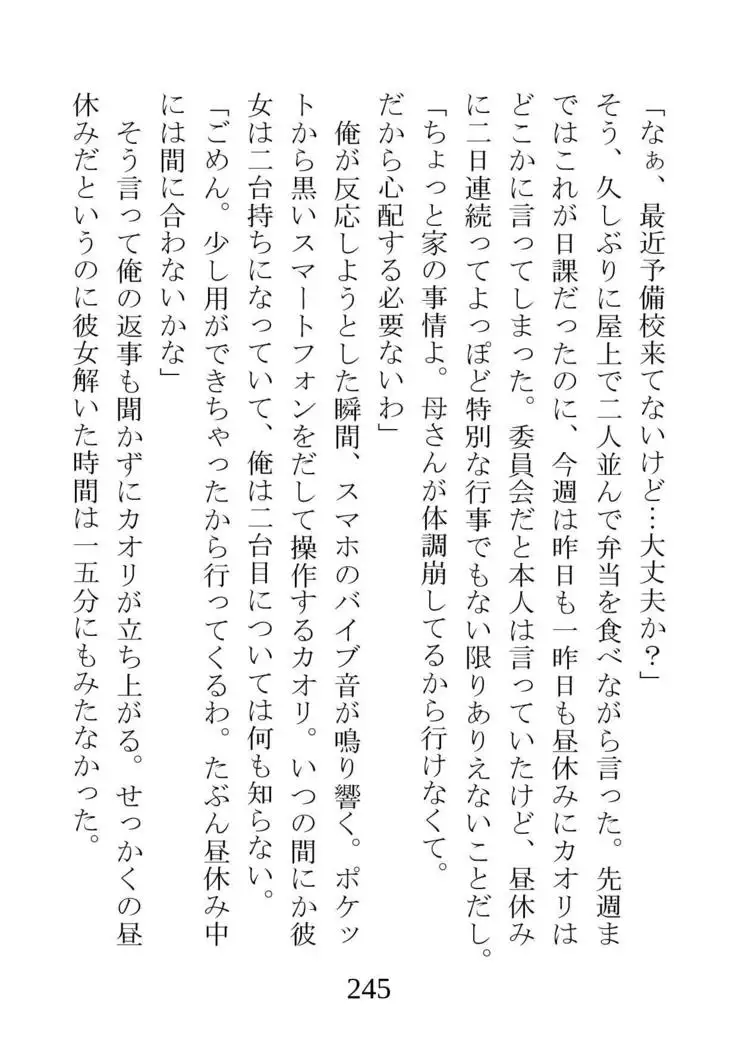 「なぁ、最近予備校来てないけど…大丈夫か？」
そう、久しぶりに屋上で二人並んで弁当を食べながら言った。先週ま
ではこれが日課だったのに、今週は昨日も一昨日も昼休みにカオリは
どこかに言ってしまった。委員会だと本人は言っていたけど、昼休み
に二日連続ってよっぽど特別な行事でもない限りありえないことだし。
「ちょっと家の事情よ。母さんが体調崩してるから行けなくて。
だから心配する必要ないわ」
俺が反応しようとした瞬間、スマホのバイブ音が鳴り響く。ポケッ
トから黒いスマートフォンをだして操作するカオリ。いつの間にか彼
女は二台持ちになっていて、俺は二台目については何も知らない。
「ごめん。少し用ができちゃったから行ってくるわ。たぶん昼休み中
には間に合わないかな」
そう言って俺の返事も聞かずにカオリが立ち上がる。せっかくの昼
休みだというのに彼女解いた時間は一五分にもみたなかった。
245